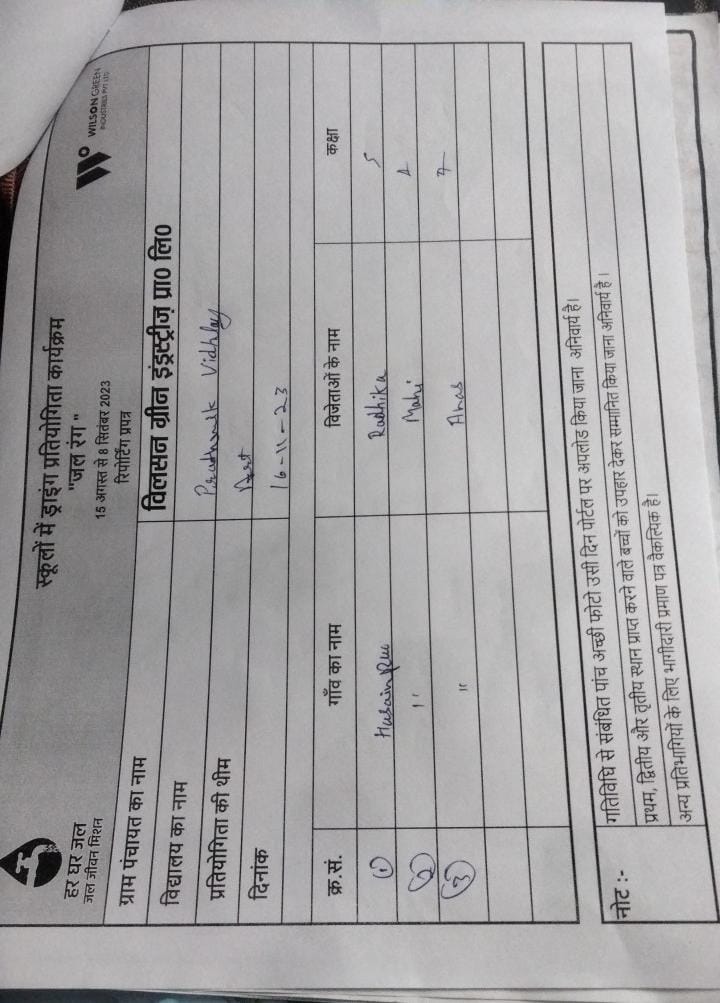 हर घर जल
जल जीवन मिशन
स्कूलों में ड्राइंग प्रतियोगिता कार्यक्रम
"जल रंग"
15 अगस्त से 8 सितंबर 2023
रिपोर्टिंग प्रपत्र
WILSON GREEN
INDUSTRIES PVT LTD
ग्राम पंचायत का नाम विलसन ग्रीन इंड्स्ट्रीज़ प्रा0 लि0
विद्यालय का नाम Vidhlay
प्रतियोगिता की थीम
दिनांक 16-11-23
क्र.सं. गाँव का नाम विजेताओं के नाम कक्षा
1 Radhika 5
2 " Mahi 4
3 " Anas
नोट :-
गतिविधि से संबंधित पांच अच्छी फोटो उसी दिन पोर्टल पर अपलोड किया जाना अनिवार्य है।
प्रथम, द्वितीय और तृतीय स्थान प्राप्त करने वाले बच्चों को उपहार देकर सम्मानित किया जाना अनिवार्य है।
अन्य प्रतिभागियों के लिए भागीदारी प्रमाण पत्र वैकल्पिक है।